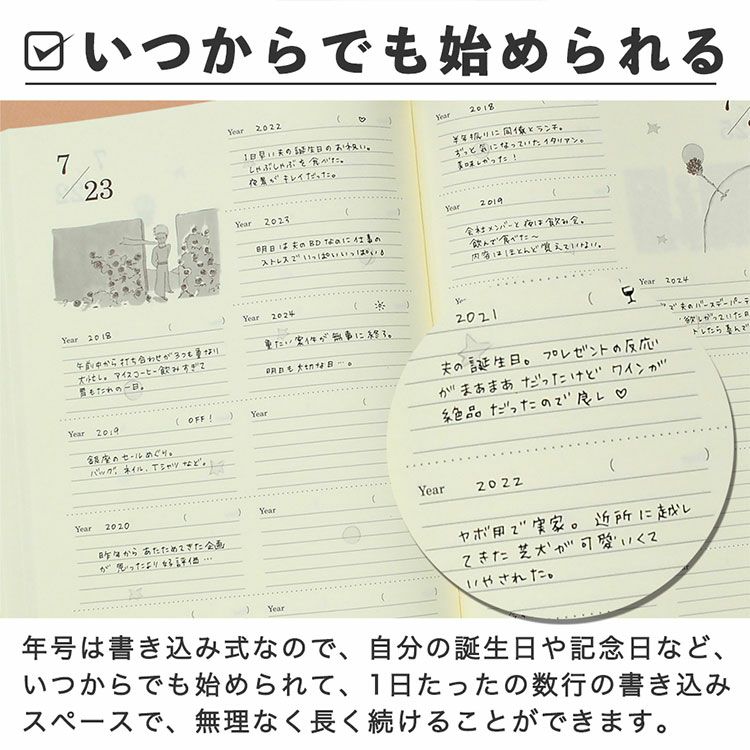 いつからでも始められる
7/23
Year 2018 ( )
午前中から打ち合わせが3つも重なり
大忙し。アイスコーヒー飲みすぎて
胃もたれの一日。
Year 2019 ( OFF! )
銀座のセールめぐり。
バッグ、ネイル、Tシャツなど。
Year 2020 (
昨年から あたためてきた企画
が 思ったより好評価…
Year 2022 ( ♡ )
1日早い夫の誕生日のお祝い。
しゃぶしゃぶを食べた。
夜景がキレイだった。
Year 2023 ( )
明日は夫のBDなのに仕事の
ストレスでいっぱいいっぱい!
Year 2024 ( ☀ )
重たい案件が無事に終了。
明日も大切な日…。
Year (
Year (
Year
Year 2018 ( )
半年振りに同僚とランチ。
ずっと気になっていたイタリアン。
美味しかった!
Year 2019 ( )
会社メンバーと夜は飲み会。
飲んで食べた〜
内容はほとんど覚えていない。
2021 (
夫の誕生日。プレゼントの反応
がまあまあだったけどワインが
絶品だったので良し♡
Year 2022 (
ヤボ用で実家。近所に越し
てきた芝犬が可愛いくて
いやされた。
Year 2024
夫のバースデーパーテ
年号は書き込み式なので、自分の誕生日や記念日など、
いつからでも始められて、1日たったの数行の書き込み
スペースで、無理なく長く続けることができます。